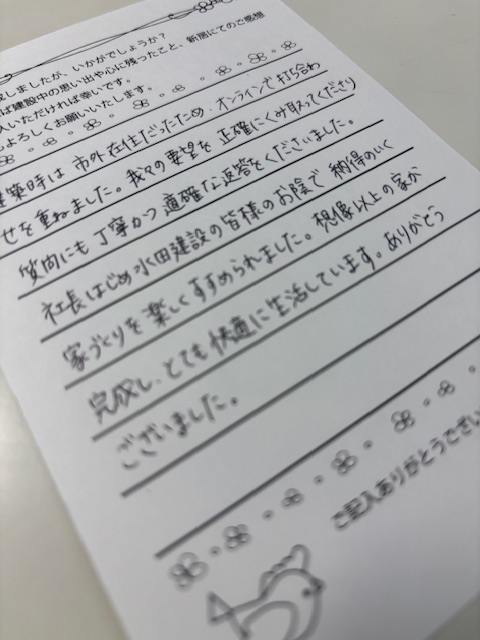 成しましたが、いかがでしょうか？
ば建設中の思い出や心に残ったこと、新居にてのご感想
入いただければ幸いです。
よろしくお願いいたします。
建築時は市外在住だったため、オンラインで打ち合わ
せを重ねました。我々の要望を正確にくみ取ってくださり
質問にも丁寧かつ適確な返答をくださいました。
社長はじめ水田建設の皆様のお陰で納得のいく
家づくりを楽しくすすめられました。想像以上の家が
完成し、とても快適に生活しています。ありがとう
ございました。
ご記入ありがとうござい